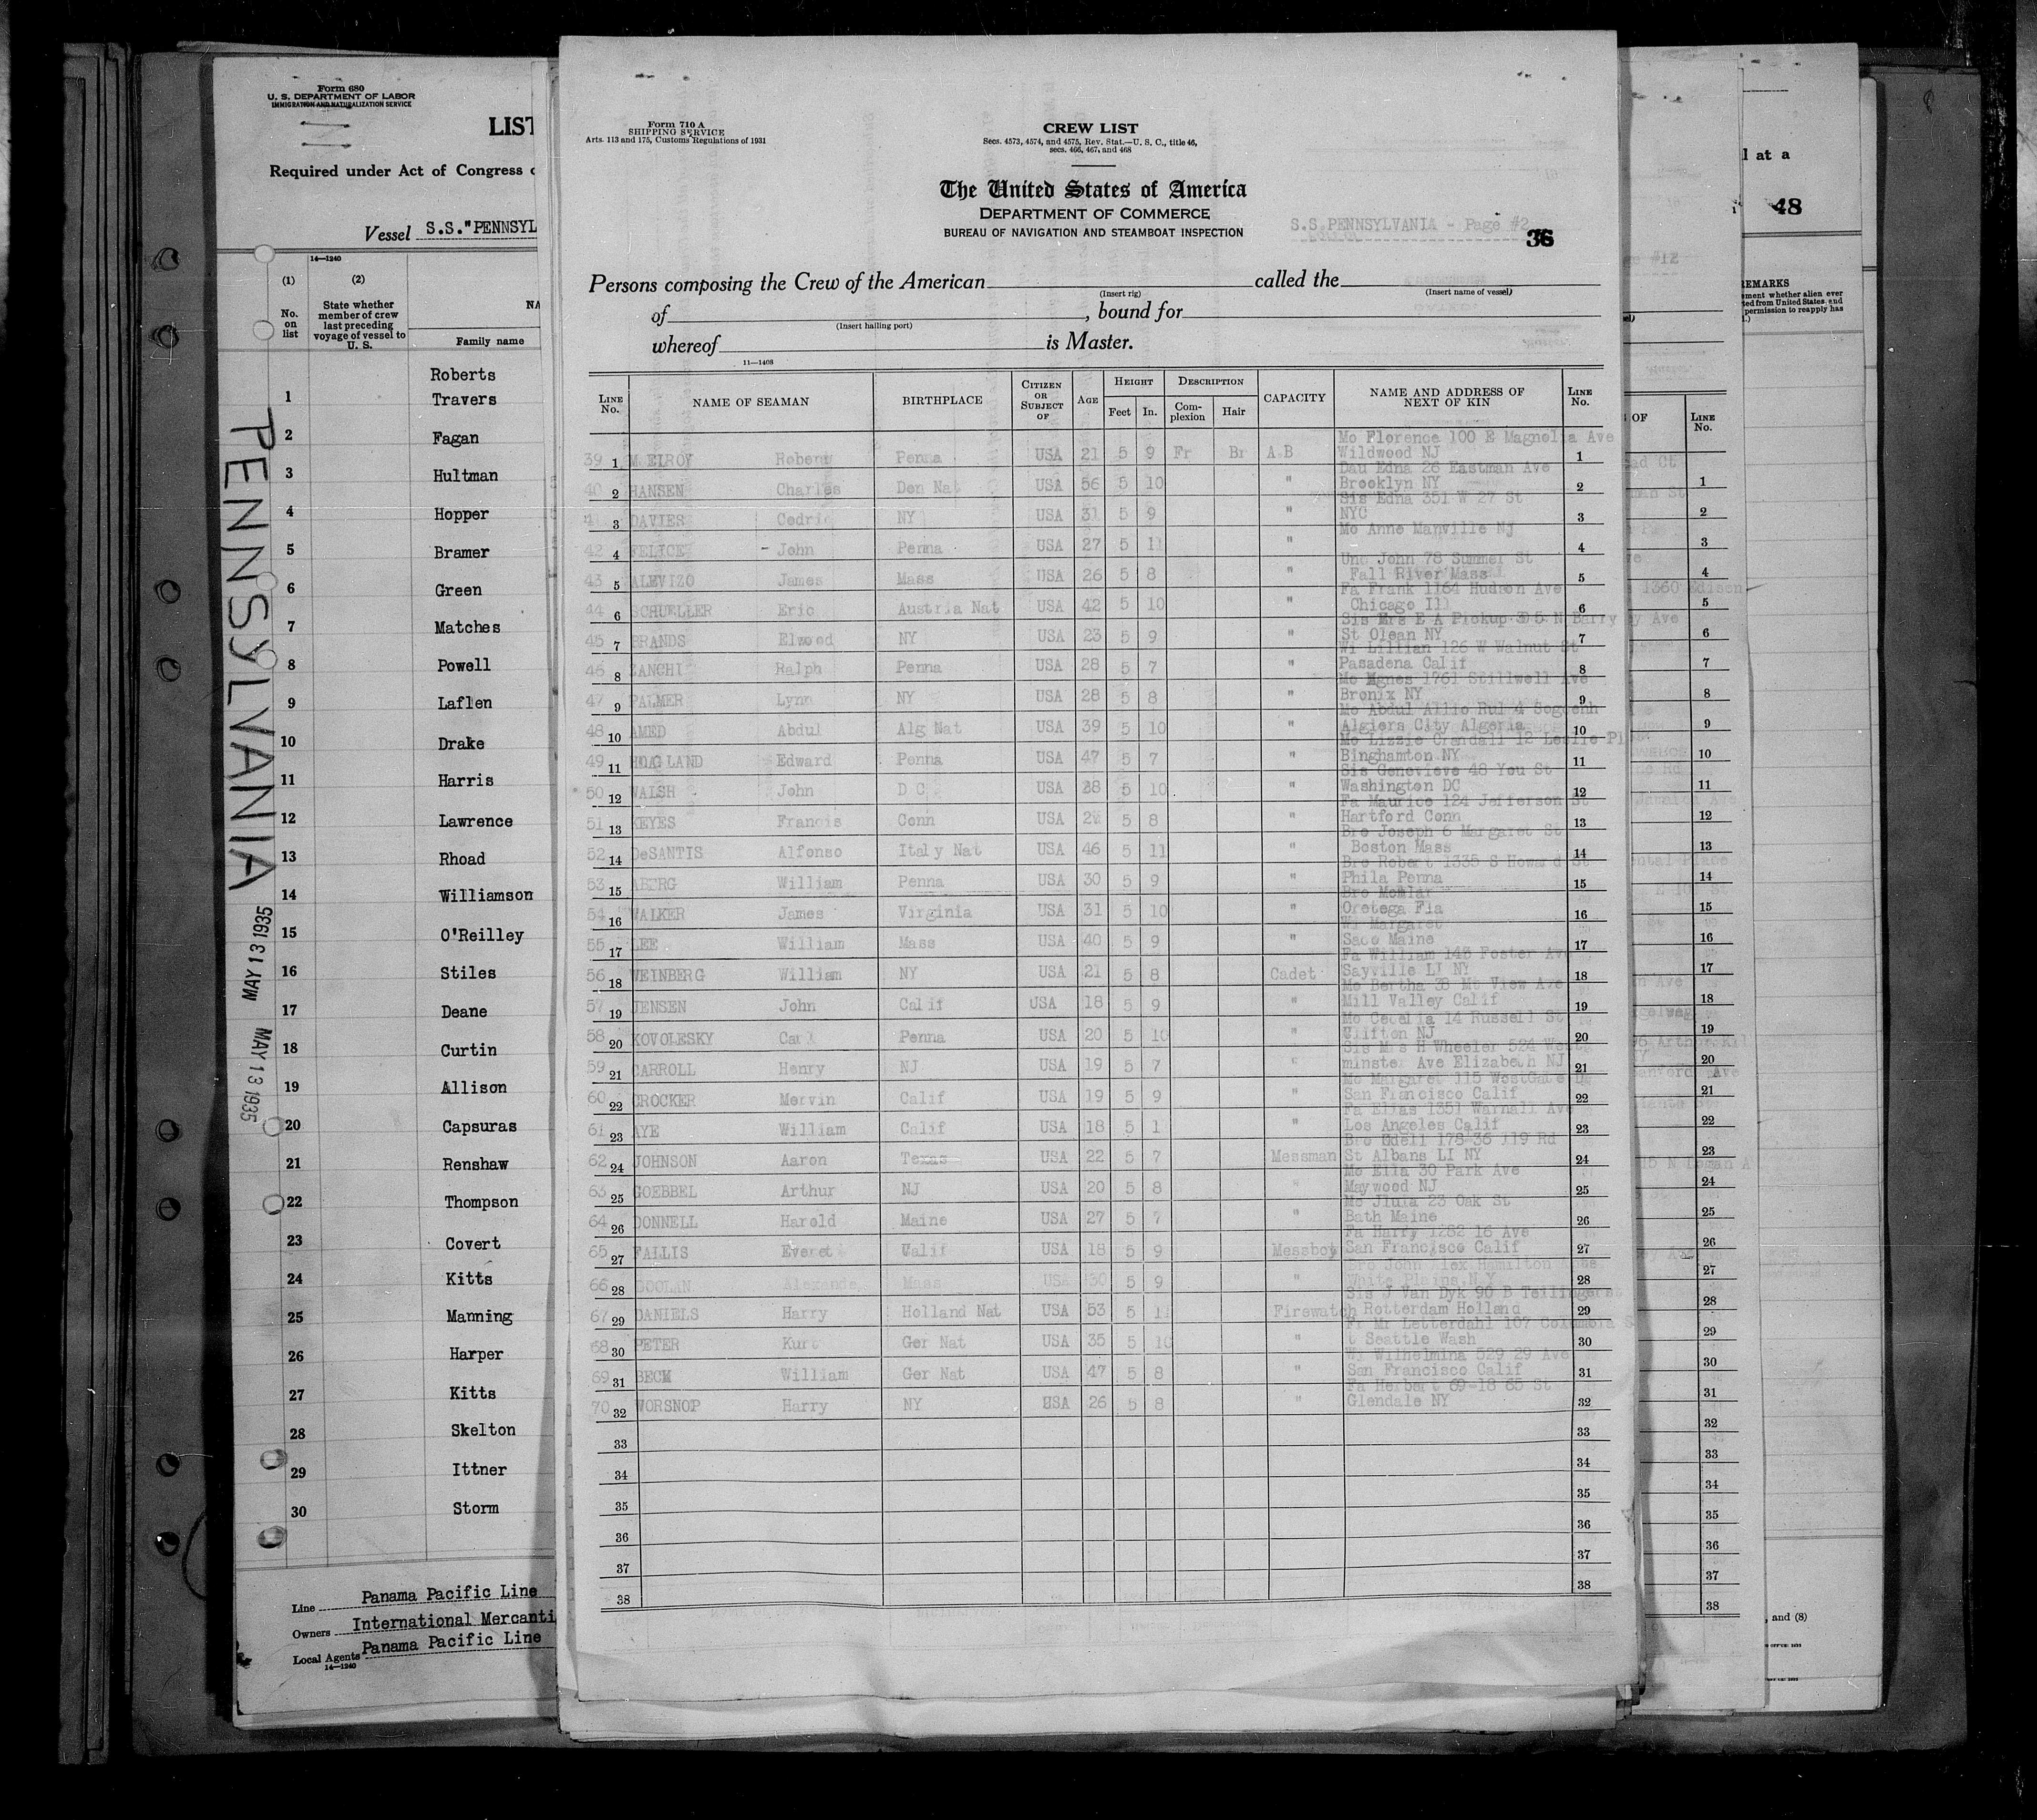 Form 680
U. S. DEPARTMENT OF LABOR
IMMIGRATION AND NATURALIZATION SERVICE
LIST
Required under Act of Congress
Vessel S.S."PENNSYL
14—1240
(1) (2)
No. on list
State whether member of crew last preceding voyage of vessel to U. S.
NA
Family name
Roberts
1 Travers
2 Fagan
3 Hultman
4 Hopper
5 Bramer
6 Green
7 Matches
8 Powell
9 Laflen
10 Drake
11 Harris
12 Lawrence
13 Rhoad
14 Williamson
15 O'Reilley
16 Stiles
17 Deane
18 Curtin
19 Allison
20 Capsuras
21 Renshaw
22 Thompson
23 Covert
24 Kitts
25 Manning
26 Harper
27 Kitts
28 Skelton
29 Ittner
30 Storm
Line Panama Pacific Line
Owners International Mercanti
Local Agents Panama Pacific Line
14—1240
PENNSYLVANIA
MAY 13 1935
MAY 13 1935
Form 710 A
SHIPPING SERVICE
Arts. 113 and 175, Customs Regulations of 1931
CREW LIST
Secs. 4573, 4574, and 4575, Rev. Stat.—U. S. C., title 46,
secs. 466, 467, and 468
The United States of America
DEPARTMENT OF COMMERCE
BUREAU OF NAVIGATION AND STEAMBOAT INSPECTION
S.S.PENNSYLVANIA - Page #2
36
Persons composing the Crew of the American called the
(Insert rig) (Insert name of vessel)
of , bound for
(Insert hailing port)
whereof is Master.
11—1408
LINE No. NAME OF SEAMAN BIRTHPLACE CITIZEN OR SUBJECT OF AGE HEIGHT Feet In. DESCRIPTION Complexion Hair CAPACITY NAME AND ADDRESS OF NEXT OF KIN LINE No.
Mo Florence 100 E Magnolia Ave
39 1 M ELROY Robert Penna USA 21 5 9 Fr Br A B Wildwood NJ 1
Dau Edna 26 Eastman Ave
40 2 HANSEN Charles Den Nat USA 56 5 10 " Brooklyn NY 2
Sis Edna 351 W 27 St
41 3 DAVIER Cedric NY USA 31 5 9 " NYC 3
Mo Anne Manville Nj
42 4 FELICE - John Penna USA 27 5 11 " 4
Unc John 78 Summer St
43 5 ALEVIZO James Mass USA 26 5 8 " Fall River Mass 5
Fa Frank 1164 Hudson Ave
44 6 SCHUELLER Eric Austria Nat USA 42 5 10 " Chicago Ill 6
Sis Mrs E A Pickup 305 N Barry
45 7 BRANDS Elwood NY USA 23 5 9 " St Olean NY 7
Wi Lillian 126 W Walnut St
46 8 ZANCHI Ralph Penna USA 28 5 7 " Pasadena Calif 8
Mo Agnes 1761 Stillwell Ave
47 9 PALMER Lynn NY USA 28 5 8 " Bronix NY 9
Mo Abdul Allio Rul 4
48 10 AMED Abdul Alg Nat USA 39 5 10 " Algiers City Algeria 10
Mo Lizzie Crandall 12 Leslie Pl
49 11 HOAGLAND Edward Penna USA 47 5 7 " Binghamton NY 11
Sis Genevieve 48 You St
50 12 WALSH John D C USA 38 5 10 " Washington DC 12
Fa Maurice 124 Jefferson St
51 13 KEYES Francis Conn USA 5 8 " Hartford Conn 13
Bro Joseph 6 Margaret St
52 14 DeSANTIS Alfonso Italy Nat USA 46 5 11 " Boston Mass 14
Bro Robert 1335 S Howard St
53 15 ABERG William Penna USA 30 5 9 " Phila Penna 15
Bro
54 16 WALKER James Virginia USA 31 5 10 " Oretega Fla 16
Wi Margaret
55 17 LEE William Mass USA 40 5 9 " Saco Maine 17
Fa William 143 Foster Ave
56 18 WEINBERG William NY USA 21 5 8 Cadet Sayville LI NY 18
Mo Bertha 38 Mt View Ave
57 19 JENSEN John Calif USA 18 5 9 " Mill Valley Calif 19
Mo Cecelia 14 Russell St
58 20 KOVOLESKY Carl Penna USA 20 5 10 " Clifton NJ 20
Sis Mrs H Wheeler 524 West
59 21 CARROLL Henry NJ USA 19 5 7 " minster Ave Elizabeth NJ 21
Mo Margaret 115 WestGate Dr
60 22 CROCKER Mervin Calif USA 19 5 9 " San Francisco Calif 22
Fa Elias 1351 Warnall Ave
61 23 AYE William Calif USA 18 5 1 " Los Angeles Calif 23
Bro Edell 178-36 119 Rd
62 24 JOHNSON Aaron Texas USA 22 5 7 Messman St Albans LI NY 24
Mo Ella 30 Park Ave
63 25 GOEBBEL Arthur NJ USA 20 5 8 " Maywood NJ 25
Mo Jlula 23 Oak St
64 26 DONNELL Harold Maine USA 27 5 7 " Bath Maine 26
Fa Harry 1282 16 Ave
65 27 FALLIS Everet Calif USA 18 5 9 Messboy San Francisco Calif 27
Bro John Alex Hamilton
66 28 COOLAN Alexande Mass USA 30 5 9 " White Plains N Y 28
Sis J Van Dyk 90 B
67 29 DANIELS Harry Holland Nat USA 53 5 11 Firewatch Rotterdam Holland 29
Fr Mr Letterdahl 107 Columbia S
68 30 PETER Kurt Ger Nat USA 35 5 10 " t Seattle Wash 30
Wi Wilhelmina 529 29 Ave
69 31 BECK William Ger Nat USA 47 5 8 " San Francisco Calif 31
Fa Herbart 69-18 65 St
70 32 WORSNOP Harry NY USA 26 5 8 " Glendale NY 32
33 33
34 34
35 35
36 36
37 37
38 38
OF LINE No.
1
2
3
4
1360 Edisen 5
Ave 6
7
8
9
10
11
12
13
14
15
16
17
18
19
20
21
22
23
24
25
26
27
28
29
30
31
32
33
34
35
36
37
38
l at a
48
EMARKS
ment whether alien ever
ted from United States, and
permission to reapply has
, and (8)